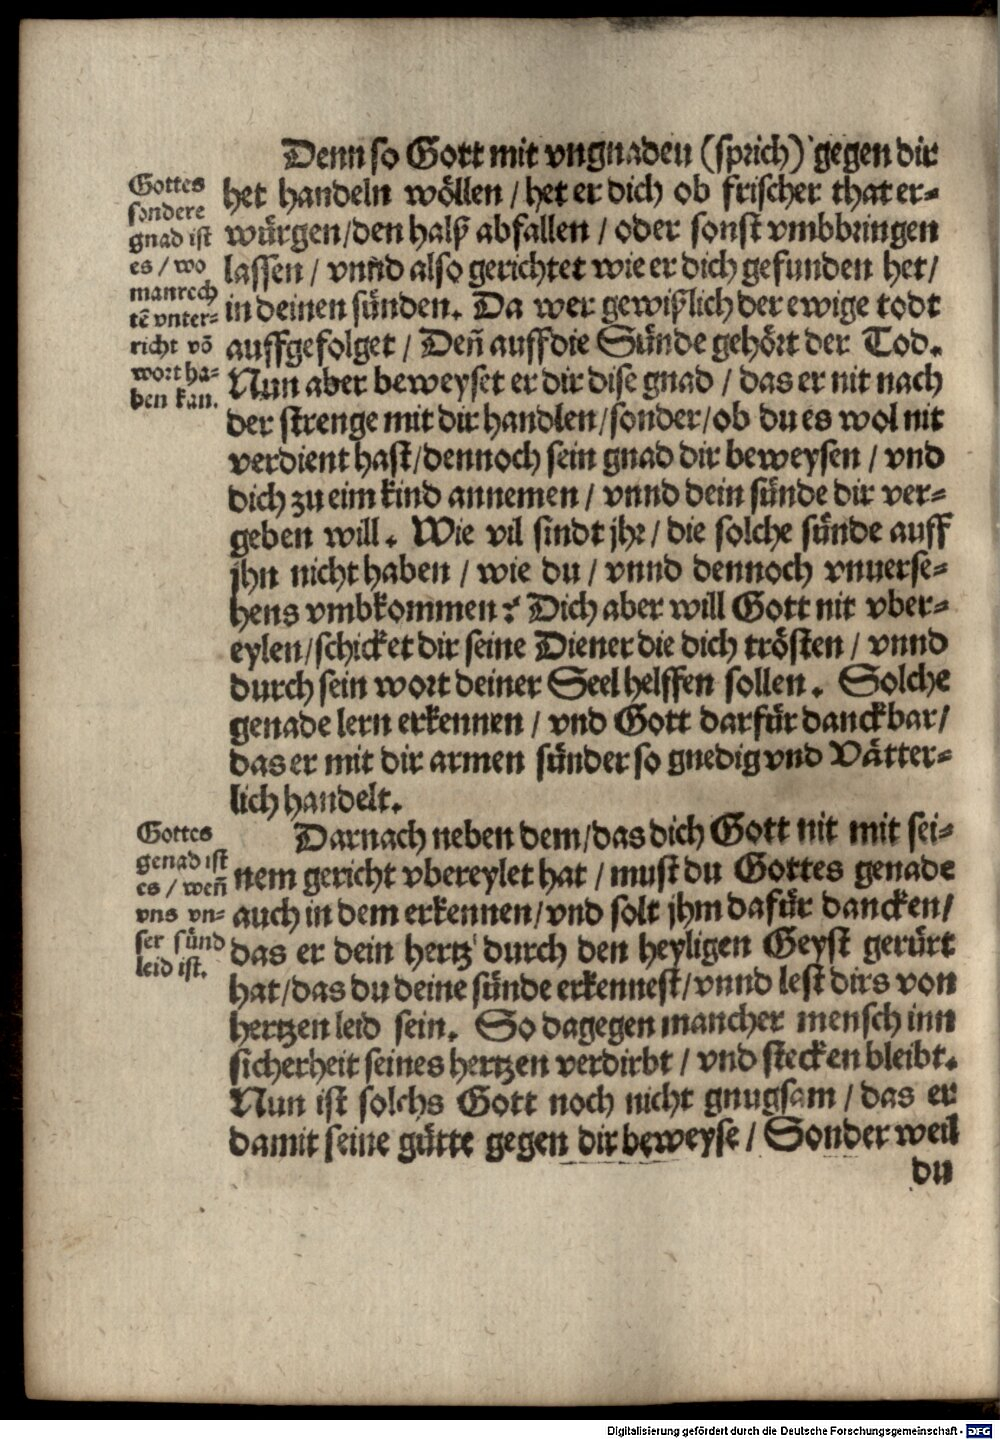 Denn so Gott mit vngnaden (sprich) gegen dir
het handeln wöllen / het er dich ob frischer that er-
würgen / den halß abfallen / oder sonst vmbbringen
lassen / vnnd also gerichtet wie er dich gefunden het /
in deinen sünden. Da wer gewißlich der ewige todt
auffgefolget / Deñ auff die Sünde gehört der Tod.
Nun aber beweyset er dir dise gnad / das er nit nach
der strenge mit dir handlen / sonder / ob du es wol nit
verdient hast / dennoch sein gnad dir beweysen / vnd
dich zu eim kind annemen / vnnd dein sünde dir ver-
geben will. Wie vil sindt jhr / die solche sünde auff
jhn nicht haben / wie du / vnnd dennoch vnuerse-
hens vmbkommen? Dich aber will Gott nit vber-
eylen / schicket dir seine Diener die dich trösten / vnnd
durch sein wort deiner Seel helffen sollen. Solche
genade lern erkennen / vnd Gott darfür danckbar /
das er mit dir armen sünder so gnedig vnd Vätter-
lich handelt.
Gottes
sondere
gnad ist
es / wo
man rech
tẽ vnter-
richt võ
wort ha-
ben kan.
Darnach neben dem / das dich Gott nit mit sei-
nem gericht vbereylet hat / must du Gottes genade
auch in dem erkennen / vnd solt jhm dafür dancken /
das er dein hertz durch den heyligen Geyst gerürt
hat / das du deine sünde erkennest / vnnd lest dirs von
hertzen leid sein. So dagegen mancher mensch inn
sicherheit seines hertzen verdirbt / vnd stecken bleibt.
Nun ist solchs Gott noch nicht gnugsam / das er
damit seine gütte gegen dir beweyse / Sonder weil
du
Gottes
genad ist
es / weñ
vns vn-
ser sünd
leid ist.
Digitalisierung gefördert durch die Deutsche Forschungsgemeinschaft - DFG